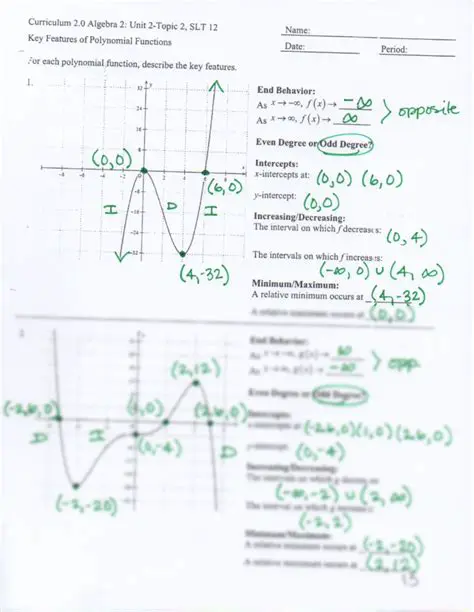 Curriculum 2.0 Algebra 2: Unit 2-Topic 2, SLT 12
Key Features of Polynomial Functions
Name:
Date: Period:
For each polynomial function, describe the key features.
1.
(0,0)
(6,0)
I D I
(4,-32)
End Behavior:
As x → -∞, f(x) → -∞
As x → ∞, f(x) → ∞
> opposite
Even Degree or Odd Degree?
Intercepts:
x-intercepts at: (0,0) (6,0)
y-intercept: (0,0)
Increasing/Decreasing:
The interval on which f decreases: (0,4)
The intervals on which f increases:
(-∞,0) ∪ (4,∞)
Minimum/Maximum:
A relative minimum occurs at (4,-32)
A relative maximum occurs at (0,0)
2.
(2,12)
(-2.6,0) (1,0) (2.6,0)
D I D
(0,-4)
(-2,-20)
End Behavior:
> opp.
Even Degree or Odd Degree?
Intercepts:
x-intercepts at (-2.6,0)(1,0)(2.6,0)
y-intercept: (0,-4)
Increasing/Decreasing:
(-∞,-2) ∪ (2,∞)
(-2,2)
Minimum/Maximum:
A relative minimum occurs at (-2,-20)
A relative maximum occurs at (2,12)
13